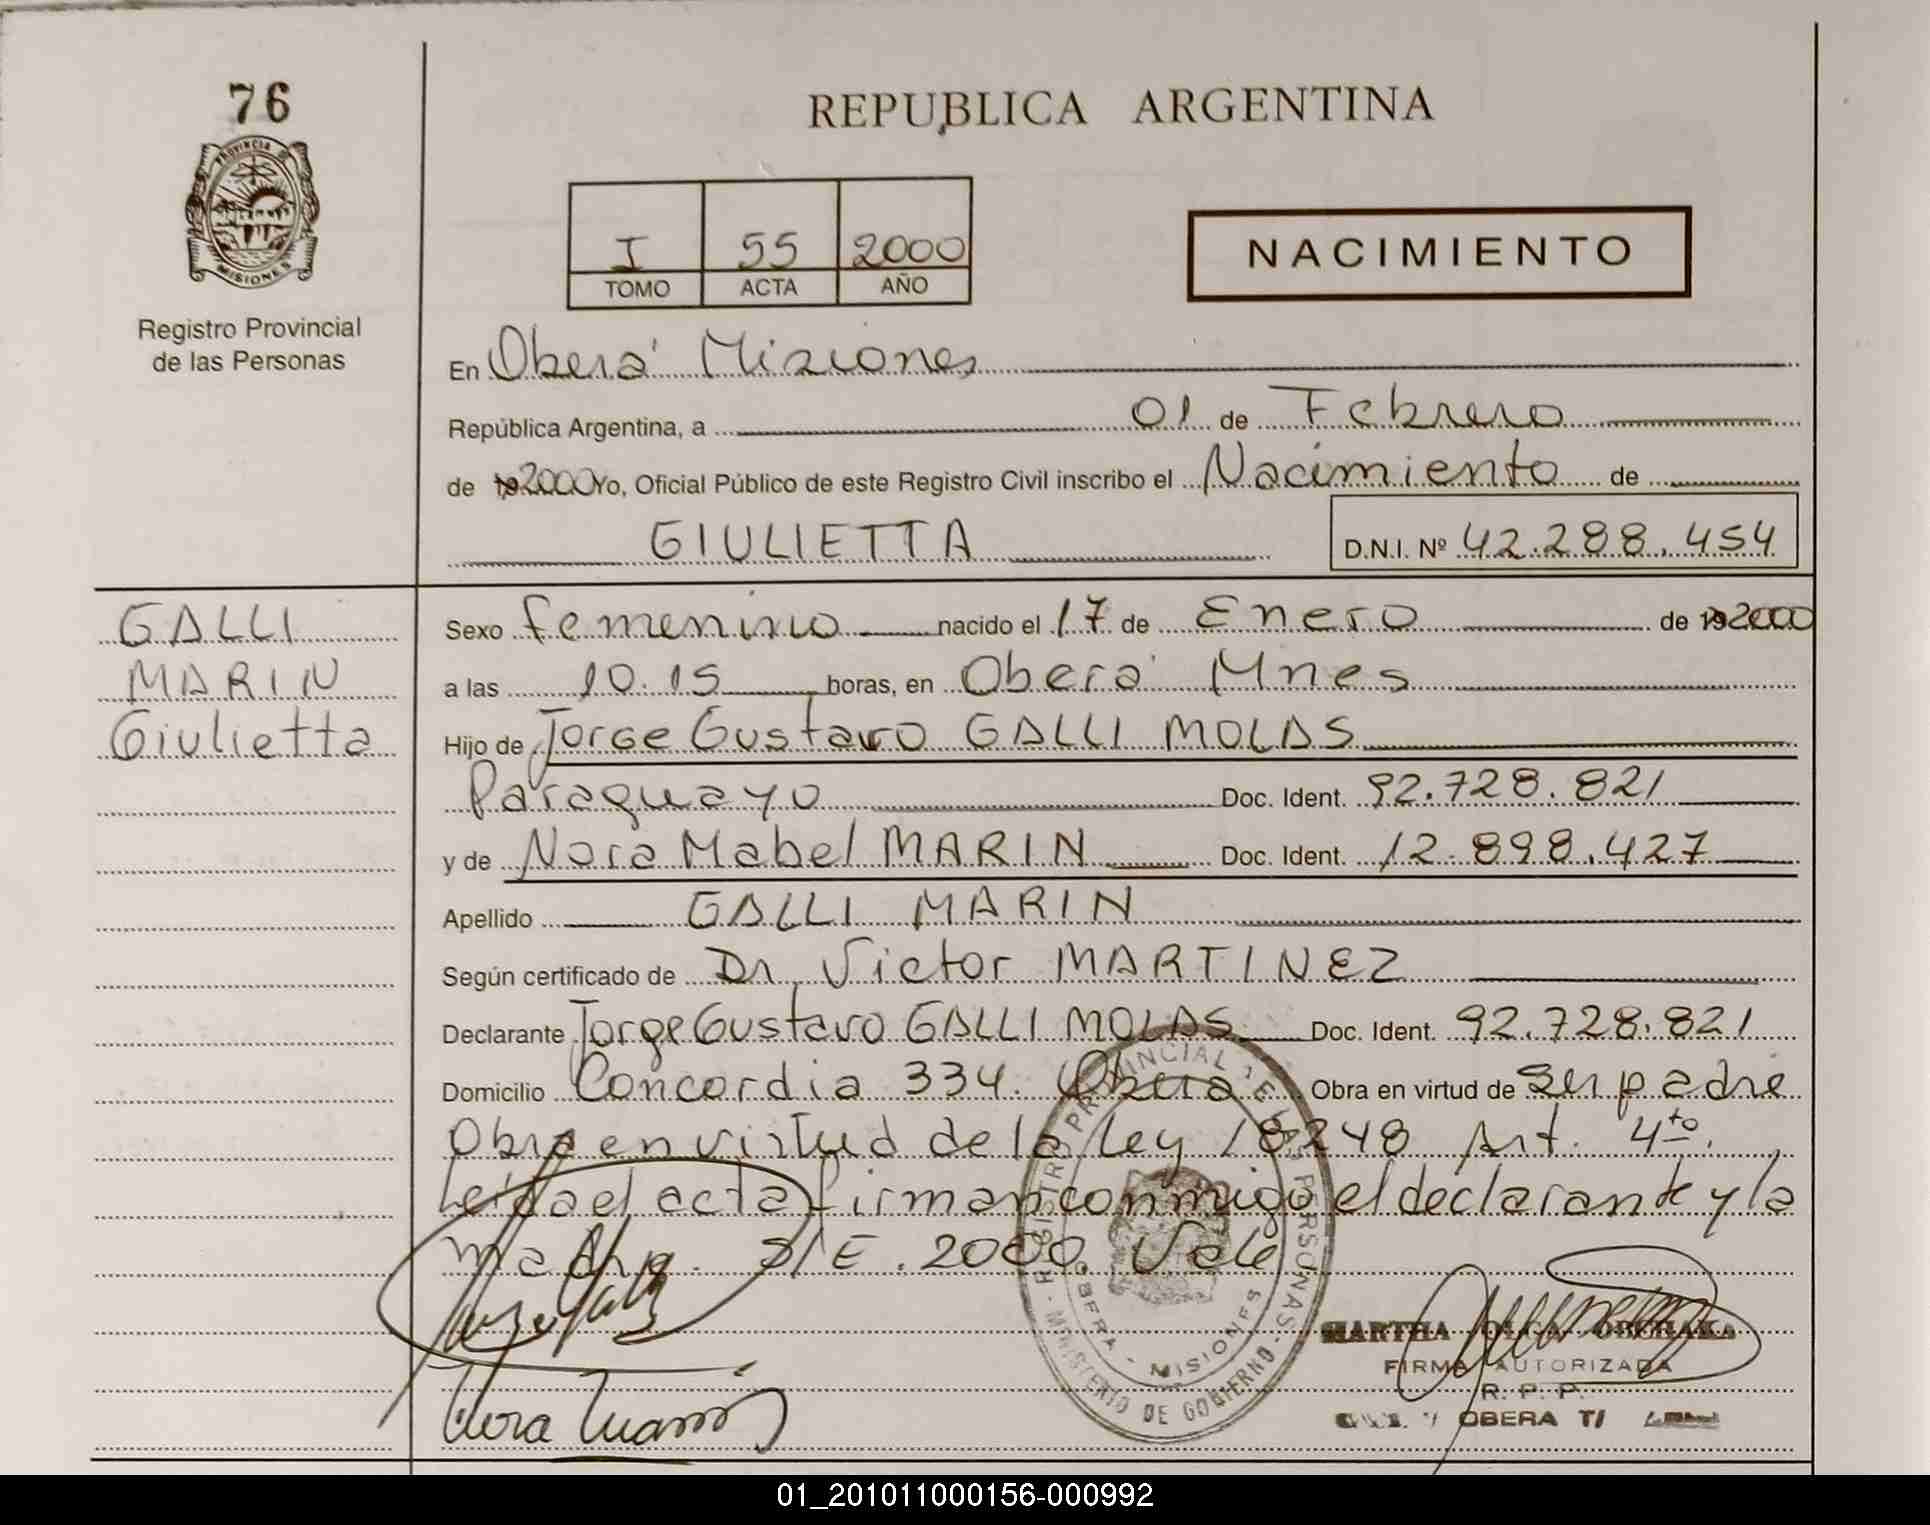 76
REPUBLICA ARGENTINA
PROVINCIA DE
MISIONES
I 55 2000
TOMO ACTA AÑO
NACIMIENTO
Registro Provincial
de las Personas
En Oberá Misiones
República Argentina, a 01 de Febrero
de 192000 Yo, Oficial Público de este Registro Civil inscribo el Nacimiento de
GIULIETTA D.N.I. Nº 42.288.454
GALLI
MARIN
Giulietta
Sexo femenino nacido el 17 de Enero de 192000
a las 10.15 horas, en Oberá Mnes
Hijo de Jorge Gustavo GALLI MOLAS
Paraguayo Doc. Ident. 92.728.821
y de Nora Mabel MARIN Doc. Ident. 12.898.427
Apellido GALLI MARIN
Según certificado de Dr. Victor MARTINEZ
Declarante Jorge Gustavo GALLI MOLAS Doc. Ident. 92.728.821
Domicilio Concordia 334. Oberá Obra en virtud de ser padre
Obra en virtud de la Ley 18248 Art. 4to.
Leída el acta firman conmigo el declarante y la
madre. S/E. 2000. Vale
REGISTRO PROVINCIAL DE LAS PERSONAS - MINISTERIO DE GOBIERNO -
OBERA - MISIONES
Nora Marin
MARTHA OLGA
FIRMA AUTORIZADA
R. P. P.
OBERA
01_201011000156-000992